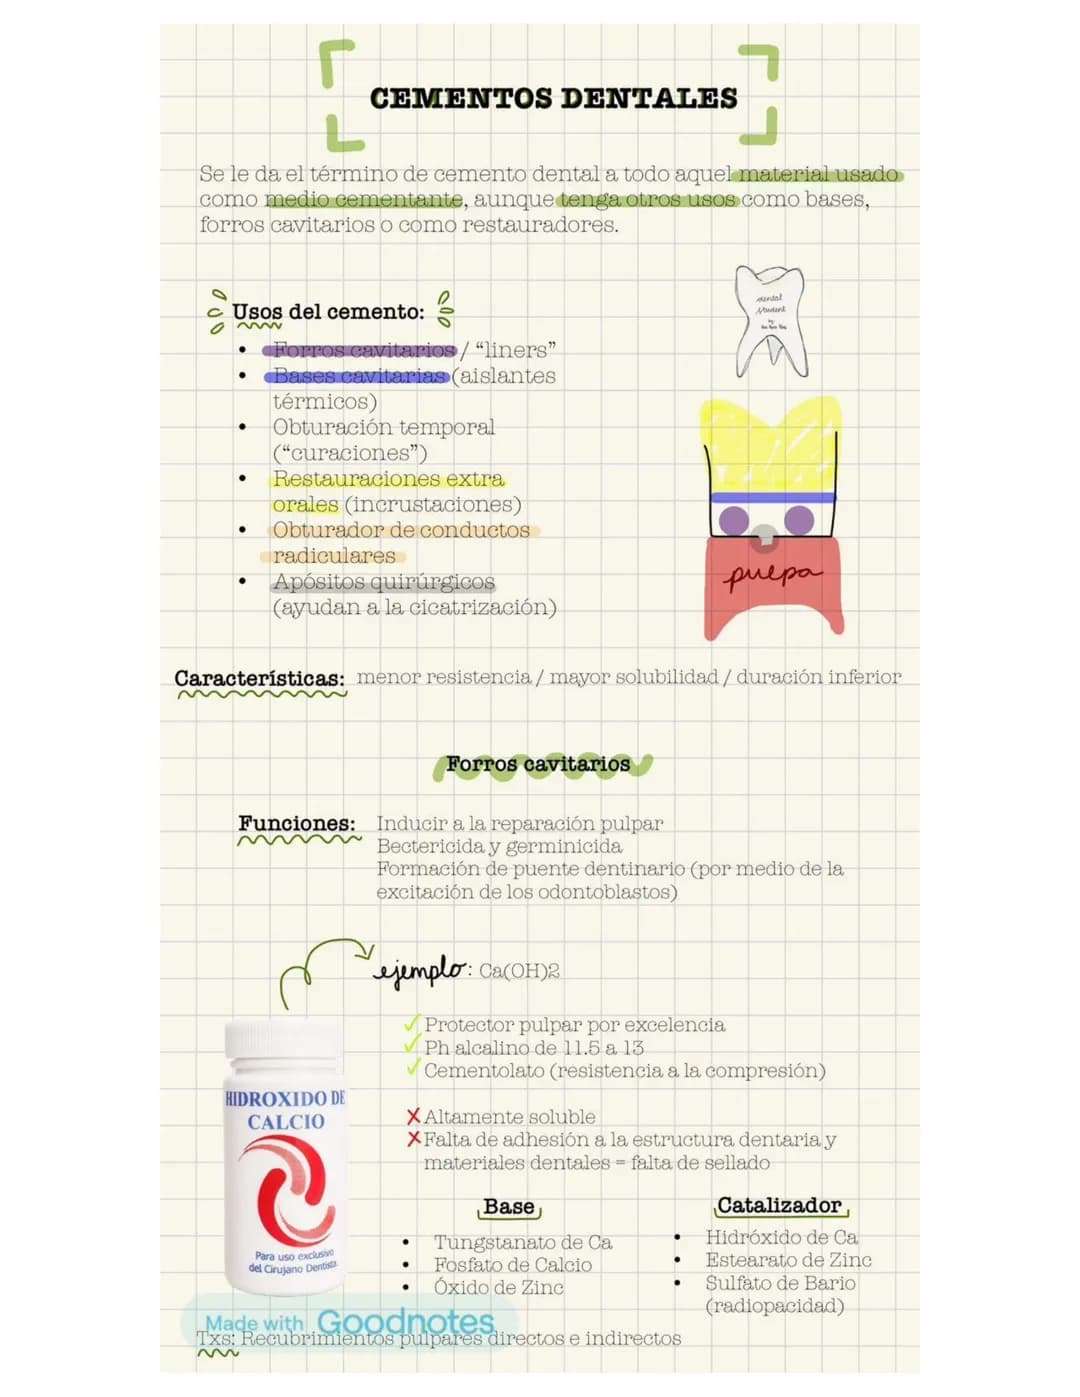 CEMENTOS DENTALES
Se le da el término de cemento dental a todo aquel material usado
como medio cementante, aunque tenga otros usos como bases,
forros cavitarios o como restauradores.
dental
student
by
Usos del cemento:
• Forros cavitarios / “liners”
• Bases cavitarias (aislantes
térmicos)
• Obturación temporal
(“curaciones”)
• Restauraciones extra
orales (incrustaciones)
• Obturador de conductos
radiculares
• Apósitos quirúrgicos
(ayudan a la cicatrización)
pulpa
Características: menor resistencia / mayor solubilidad / duración inferior
Forros cavitarios
Funciones: Inducir a la reparación pulpar
Bectericida y germinicida
Formación de puente dentinario (por medio de la
excitación de los odontoblastos)
ejemplo: Ca(OH)2
✓ Protector pulpar por excelencia
✓ Ph alcalino de 11.5 a 13
✓ Cementolato (resistencia a la compresión)
X Altamente soluble
X Falta de adhesión a la estructura dentaria y
materiales dentales = falta de sellado
HIDROXIDO DE
CALCIO
Para uso exclusivo
del Cirujano Dentista.
Base
• Tungstanato de Ca
• Fosfato de Calcio
• Óxido de Zinc
Catalizador
• Hidróxido de Ca
• Estearato de Zinc
• Sulfato de Bario
(radiopacidad)
Made with Goodnotes
Txs: Recubrimientos pulpares directos e indirectos